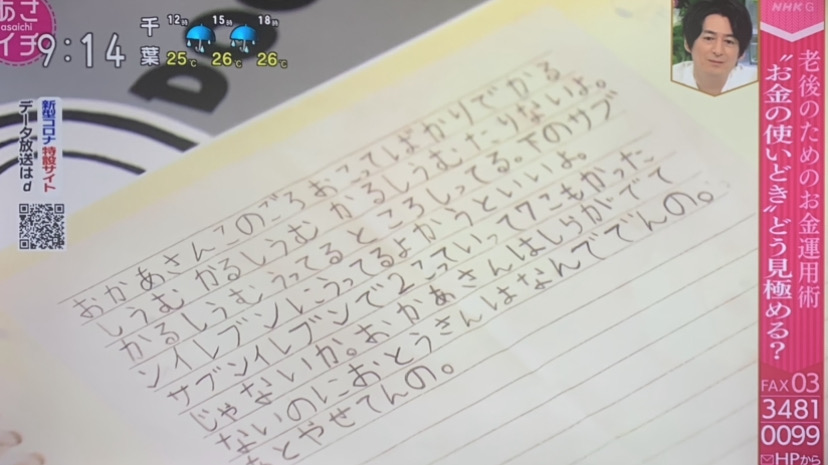 あさ
イチ
asaichi
9:14
千葉
12時 15時 18時
25℃ 26℃ 26℃
新型コロナ 特設サイト
データ放送はd
おかあさんこのごろおこってばかりでかる
しうむ かるしうむ かるしうむたりないよ。
かるしうむうってるところしってる。下のサブ
ンイレブンにうってるよかうといいよ。
サブンイレブンで2こっていって7こもかった
じゃないか。おかあさんはしらがでて
ないのにおとうさんはなんででんの。
とやせてんの。
NHK G
老後のためのお金運用術
“お金の使いどき”どう見極める?
FAX 03
3481
0099
HPから